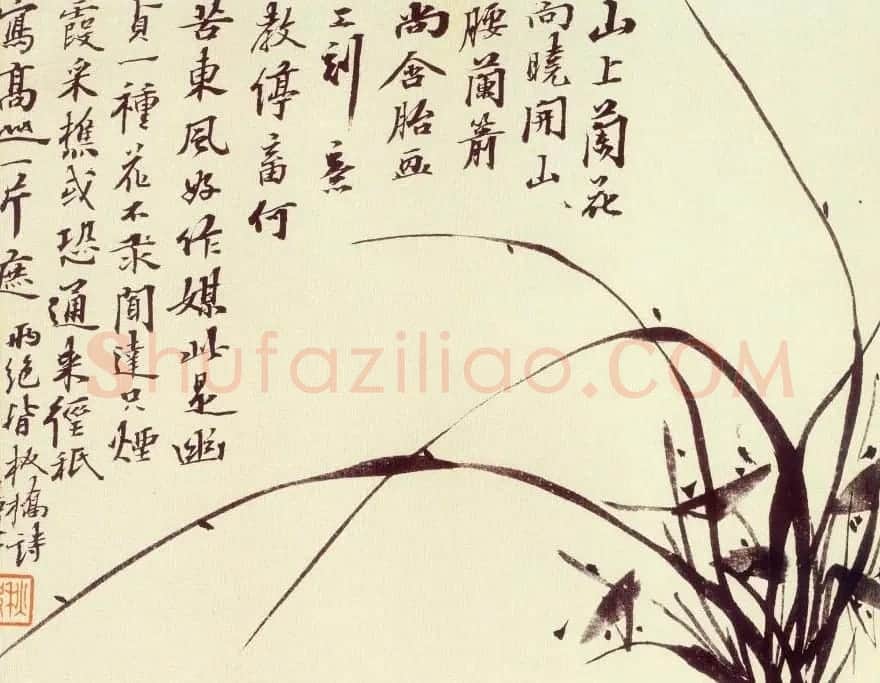 山上蘭花
向曉開山
腰蘭箭
尚含胎画
工刻意
教停畜何
苦東風好作媒此是幽
貞一種花不求聞達只煙
霞采樵或恐通來徑祇
寫高山一片遮兩絕皆板橋詩
Shufaziliao.COM